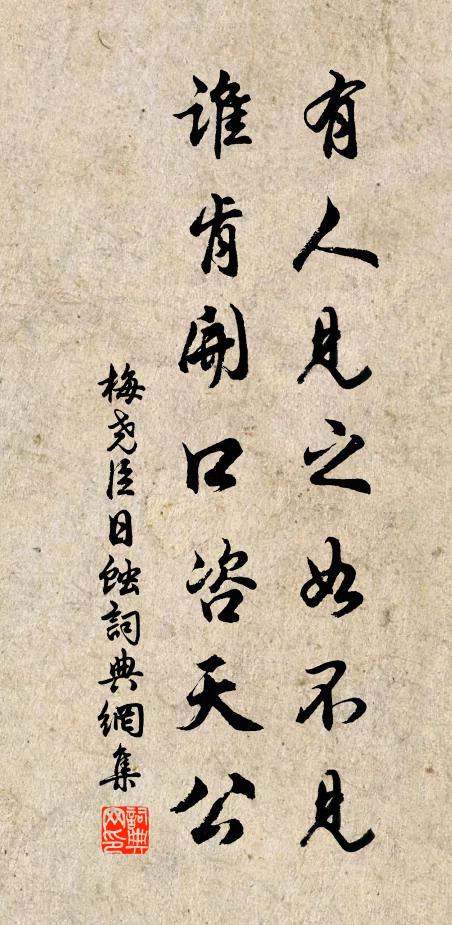 有人見之如不見
誰肯開口咨天公
梅堯臣日蝕詞典網集
詞典网印